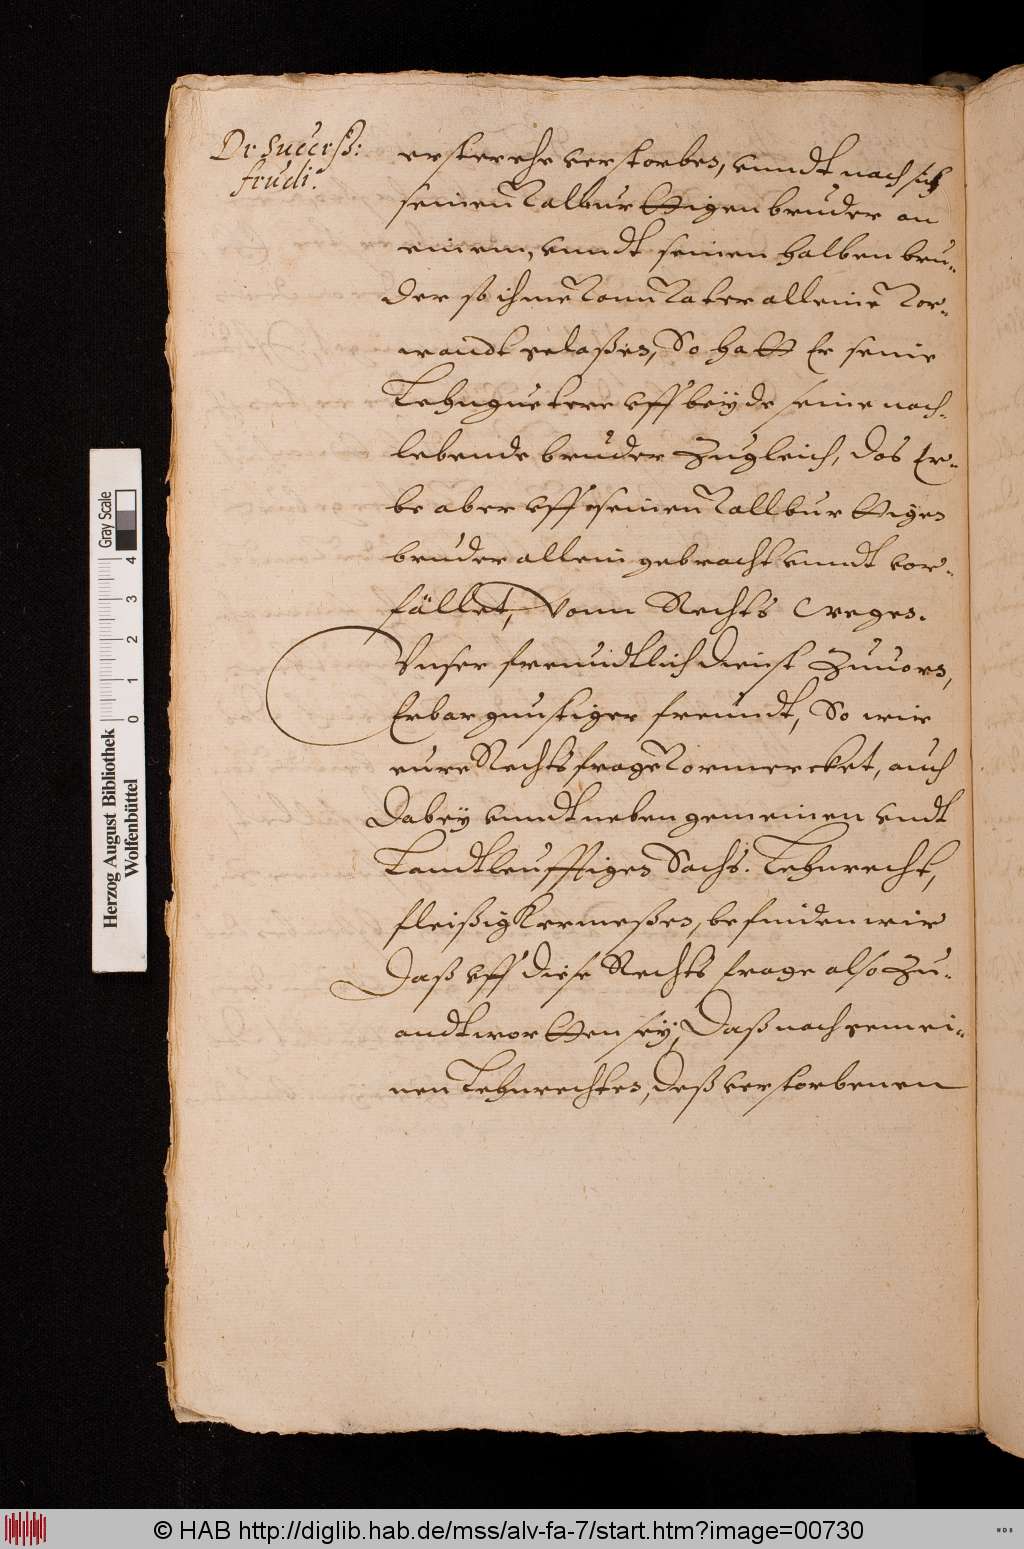 De Success:
feudi.
erster ehe verstorben, vnndt nach sich
seinen Vollbürttigen bruder an
einem, vnndt seinen halben bru-
der so ihme vom Vater alleine vor-
wandt gelaßen, So hatt Er seine
Lehnguetere vff beyde seine nach-
lebende bruder Zugleich, das Er-
be aber vff seinen Vollbürttigen
bruder allein gebracht vnndt vor-
fället, Vonn Rechts Weges.
Vnser freundtlich dienst Zuuorn,
Erbar gunstiger freundt, So wir
eure Rechtsfrage vormercket, auch
Dabey vnndt neben gemeinen vndt
Landtleufftigen Sachs. Lehnrecht,
fleißig ermeßen, befinden wir
Daß vff diese Rechts frage also Zu-
andtwortten sey, Daß nach gemei-
nen Lehnrechten, deß verstorbenen
Herzog August Bibliothek
Wolfenbüttel
Gray Scale
0 1 2 3 4
© HAB http://diglib.hab.de/mss/alv-fa-7/start.htm?image=00730